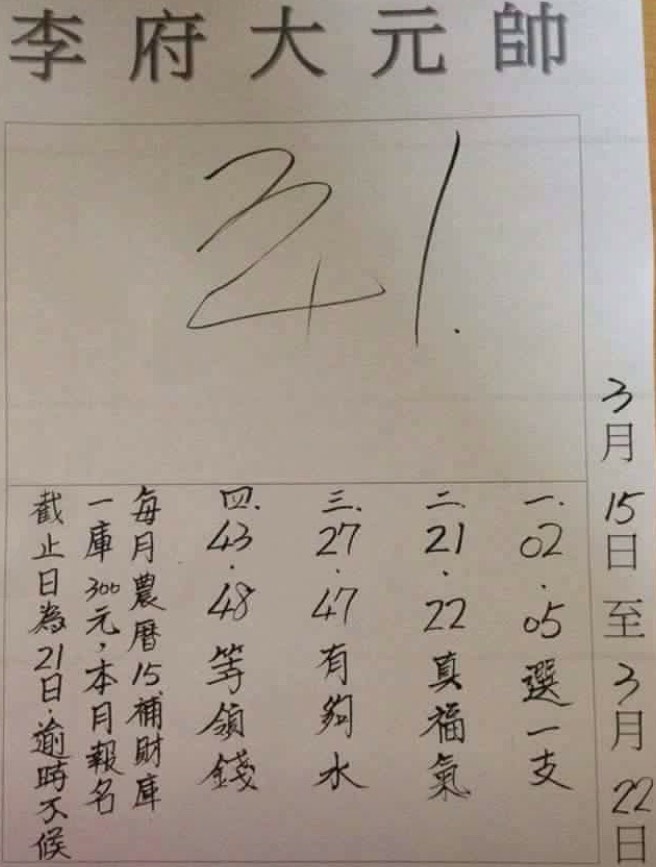 李府大元帥
31.
3月15日至3月22日
一.02.05選一支
二.21.22真福氣
三.27.47有夠水
四.43.48等領錢
每月農曆15補財庫
一庫300元，本月報名
截止日為21日.逾時不候